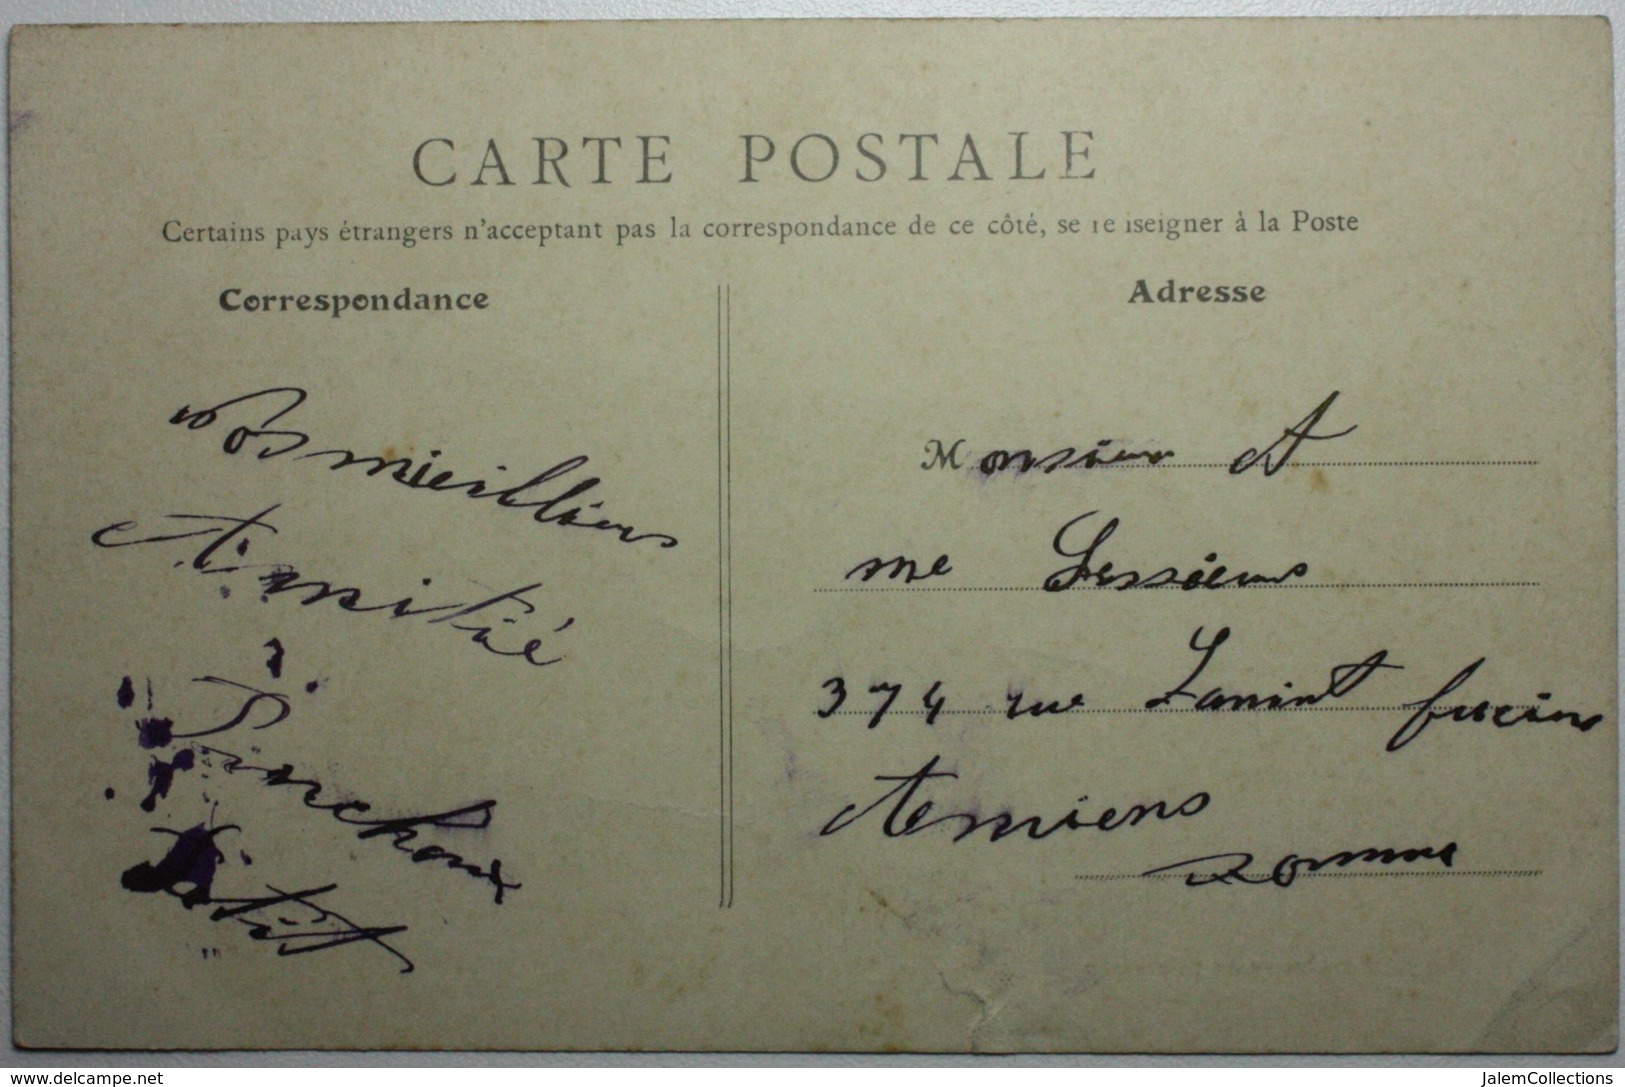 CARTE POSTALE
Certains pays étrangers n'acceptent pas la correspondance de ce côté, se renseigner à la Poste
Correspondance
Adresse
Nos meilleurs
Amitié
Petit
Monsieur A
me Lessieus
374 rue Zanint
Amiens
Somme
www.delcampe.net
JalemCollections